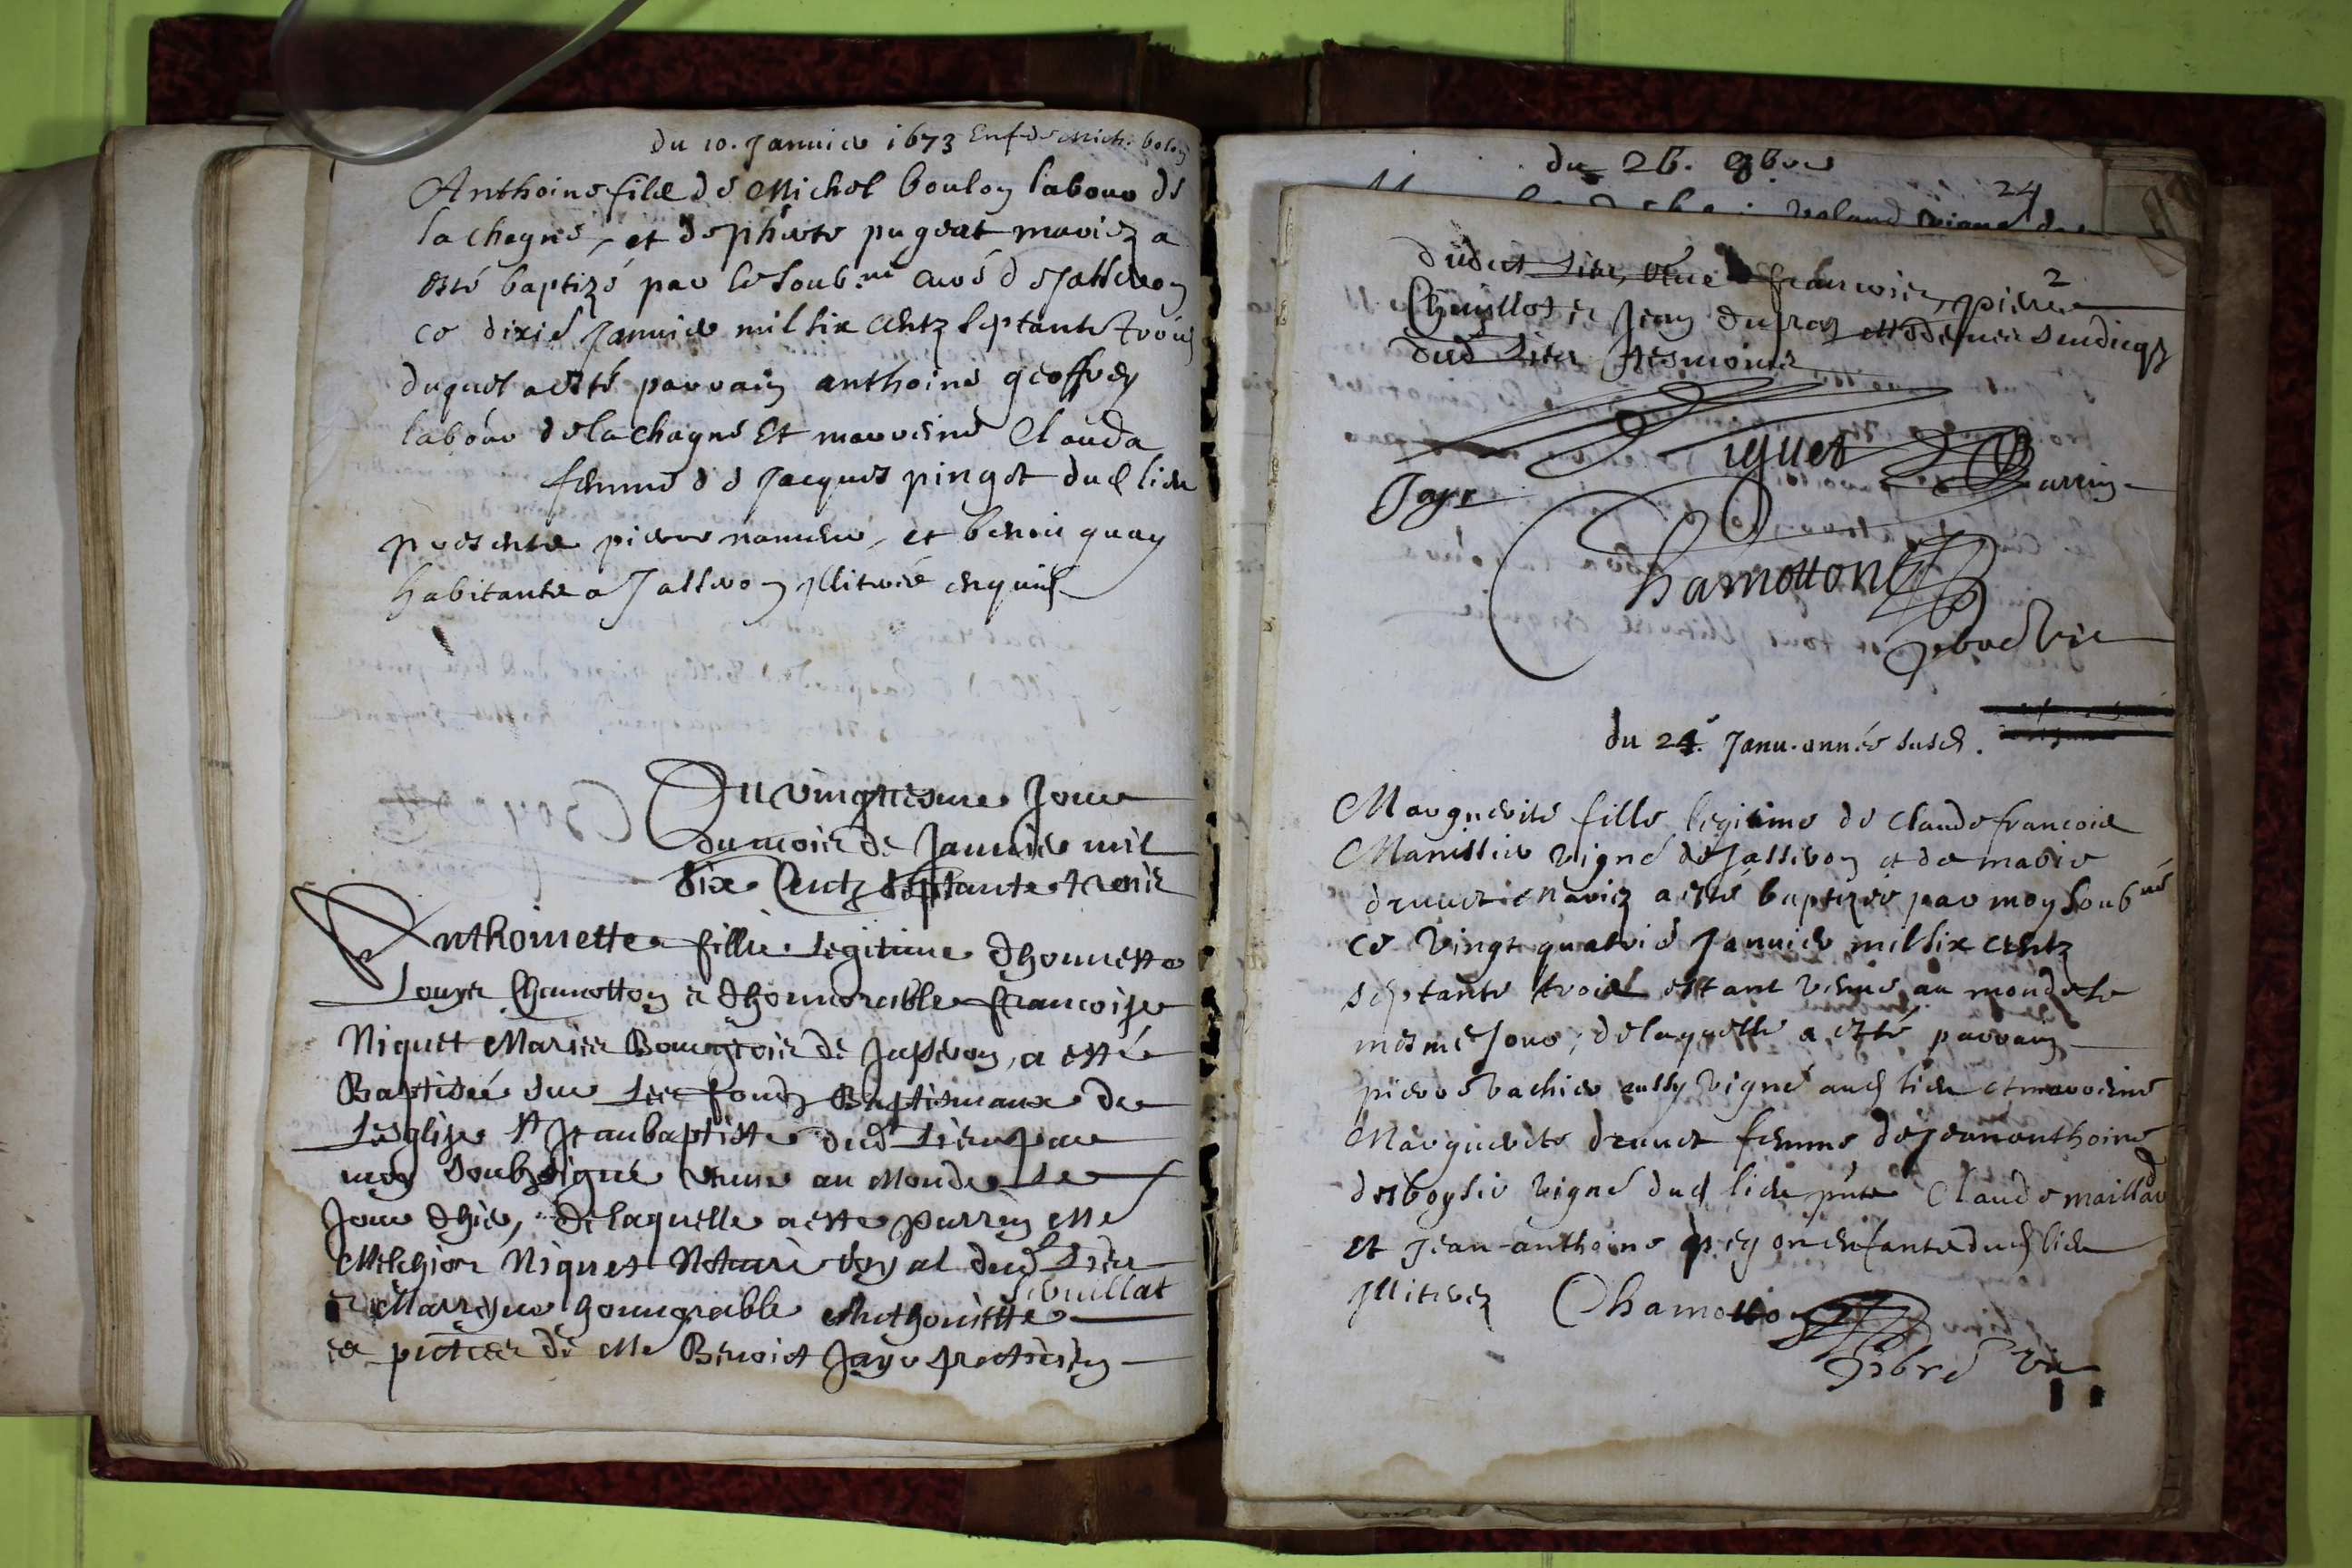 du 10. Januier 1673 Enf. de Mich. bolon
Anthoine filz de Michel boulon labour de
la chagne, et de phterte pugeat mariez a
esté baptizé par le soub.né curé de Jasseron
ce dixié Januier mil six centz septante trois
duquel a esté parrain anthoine geoffrey
labour de la chagne Et marreine Clauda
femme de Jacques pingot dud lieu
presentz pierre et benoit quay
habitantz a Jasseron illiteré enquis
Du vingtiesme Jour
du mois de Januier mil
Six Centz Septante trois
Anthoinette fillie legitime dhonneste
Louys Chamotton et dhonnorable francoise
Niquet Mariés Bourgeois de Jasseron, a esté
Baptisée sur les fondz Baptismaux de
Lesglise St Jeanbaptiste dud Lieu par
moy Soubzsigné venue au Monde le
Jour dhier, de laquelle a esté parrin Me
Melchior Niquet Notaire Royal dud Lieu
et Marreyne honnorable Anthoinette Sibuillat
de Me Benoist Jayr praticien
du 26. 9bre
24
2
dudict Lieu, francois, pierre
Chuyllot et Jean dufray modernes sindicqz
dud Lieu tesmoins
Niquet Parrin
Jayr
Chamotton
pbre Vic
du 24.e Janu. année susd.
Marguerite fille legitime de Claude francois
Manissier vigné de Jasseron et de marie
druuet mariez a esté baptizée par moy soubné
ce vingt quatrié Januier mil six centz
septante trois estant venue au monde le
mesme Jour; de laquelle a esté parrain
pierre vachier aussy vigné aud lieu et marreine
Marguerite druuet femme de Jean anthoine
desboysir vigné dud lieu pntz Claude maillard
et Jean-anthoine enfantz dud lieu
illiterez Chamotton
pbre Vic